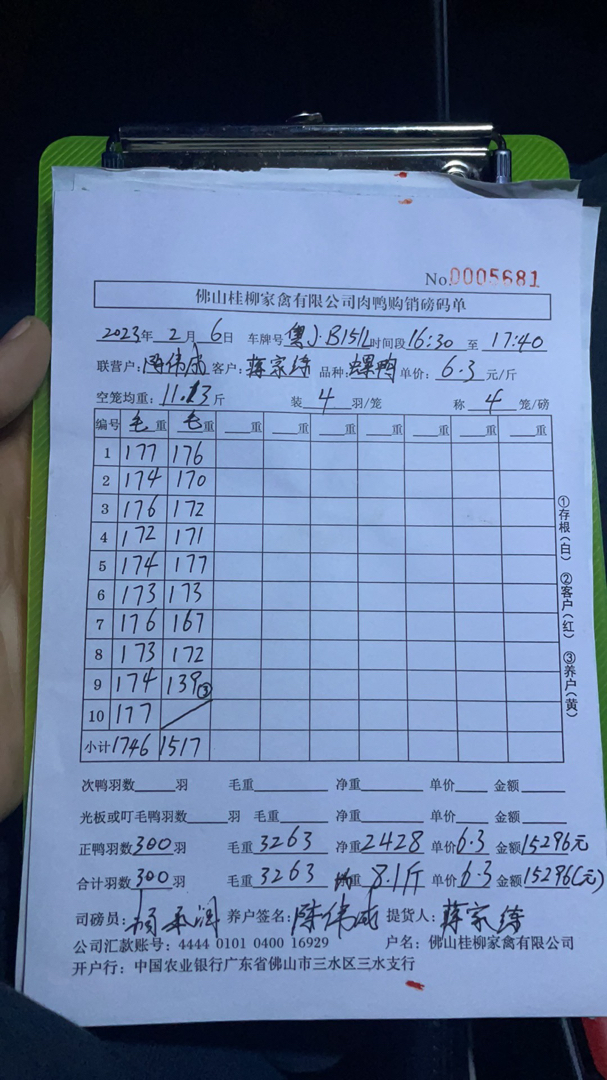 No.0005681
佛山桂柳家禽有限公司肉鸭购销磅码单
2023年 2月 6日 车牌号 粤J·B151L 时间段 16:30 至 17:40
联营户: 陈伟成 客户: 蒋家练 品种: 螺鸭 单价: 6.3 元/斤
空笼均重: 11.13 斤 装 4 羽/笼 称 4 笼/磅
编号 毛重 毛重 重 重 重 重 重 重
1 177 176
2 174 170
3 176 172
4 172 171
5 174 177
6 173 173
7 176 167
8 173 172
9 174 139③
10 177
小计 1746 1517
①存根(白) ②客户(红) ③养户(黄)
次鸭羽数 羽 毛重 净重 单价 金额
光板或叮毛鸭羽数 羽 毛重 净重 单价 金额
正鸭羽数 300 羽 毛重 3263 净重 2428 单价 6.3 金额 15296元
合计羽数 300 羽 毛重 3263 重 8.1斤 单价 6.3 金额 15296(元)
司磅员: 养户签名: 陈伟成 提货人: 蒋家练
公司汇款账号: 4444 0101 0400 16929 户名: 佛山桂柳家禽有限公司
开户行: 中国农业银行广东省佛山市三水区三水支行